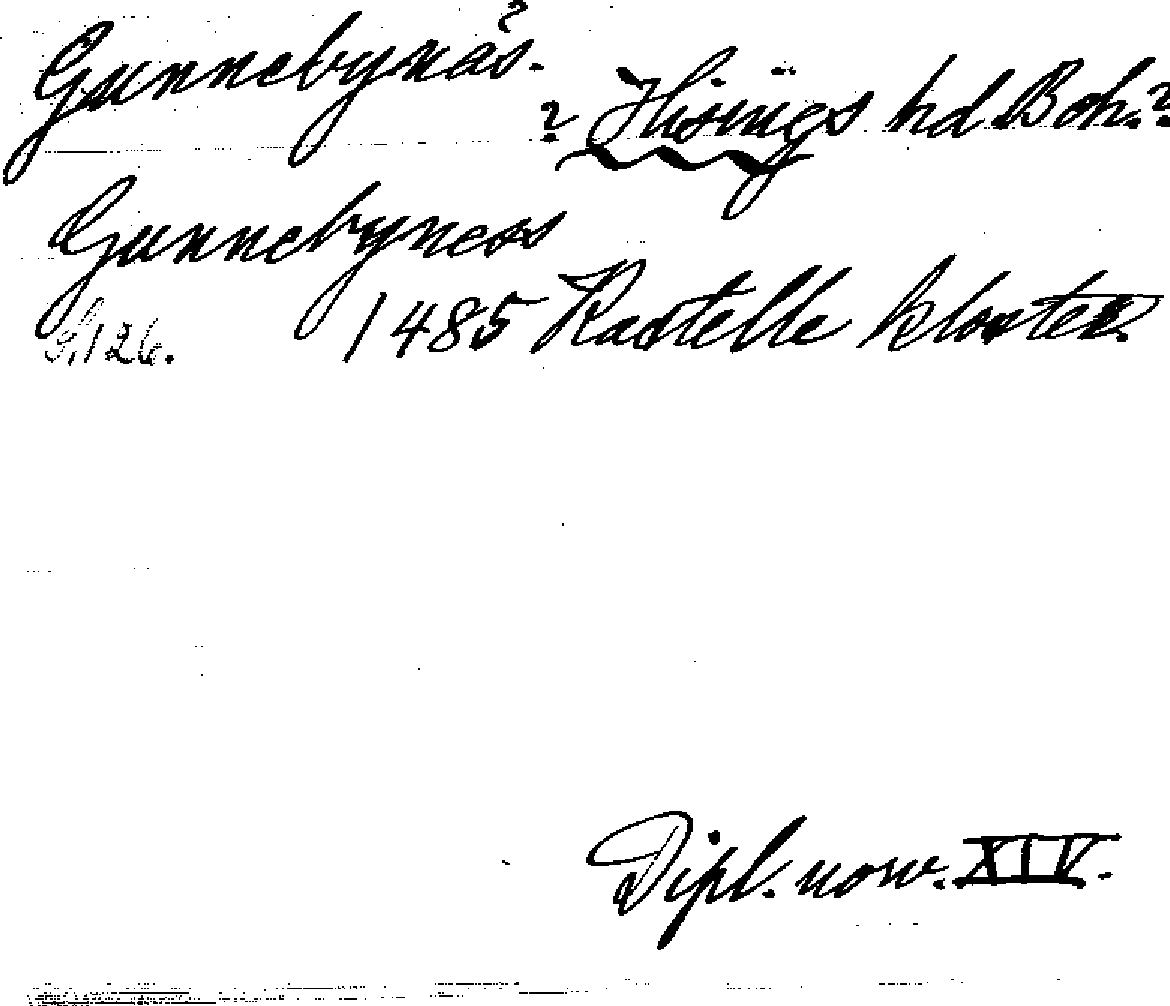 Gunnebynäs.
? Hisings hd. Boh.?
Gunnebyness
S. 126. 1485 Kastelle kloster.
Dipl. norv. XIV.